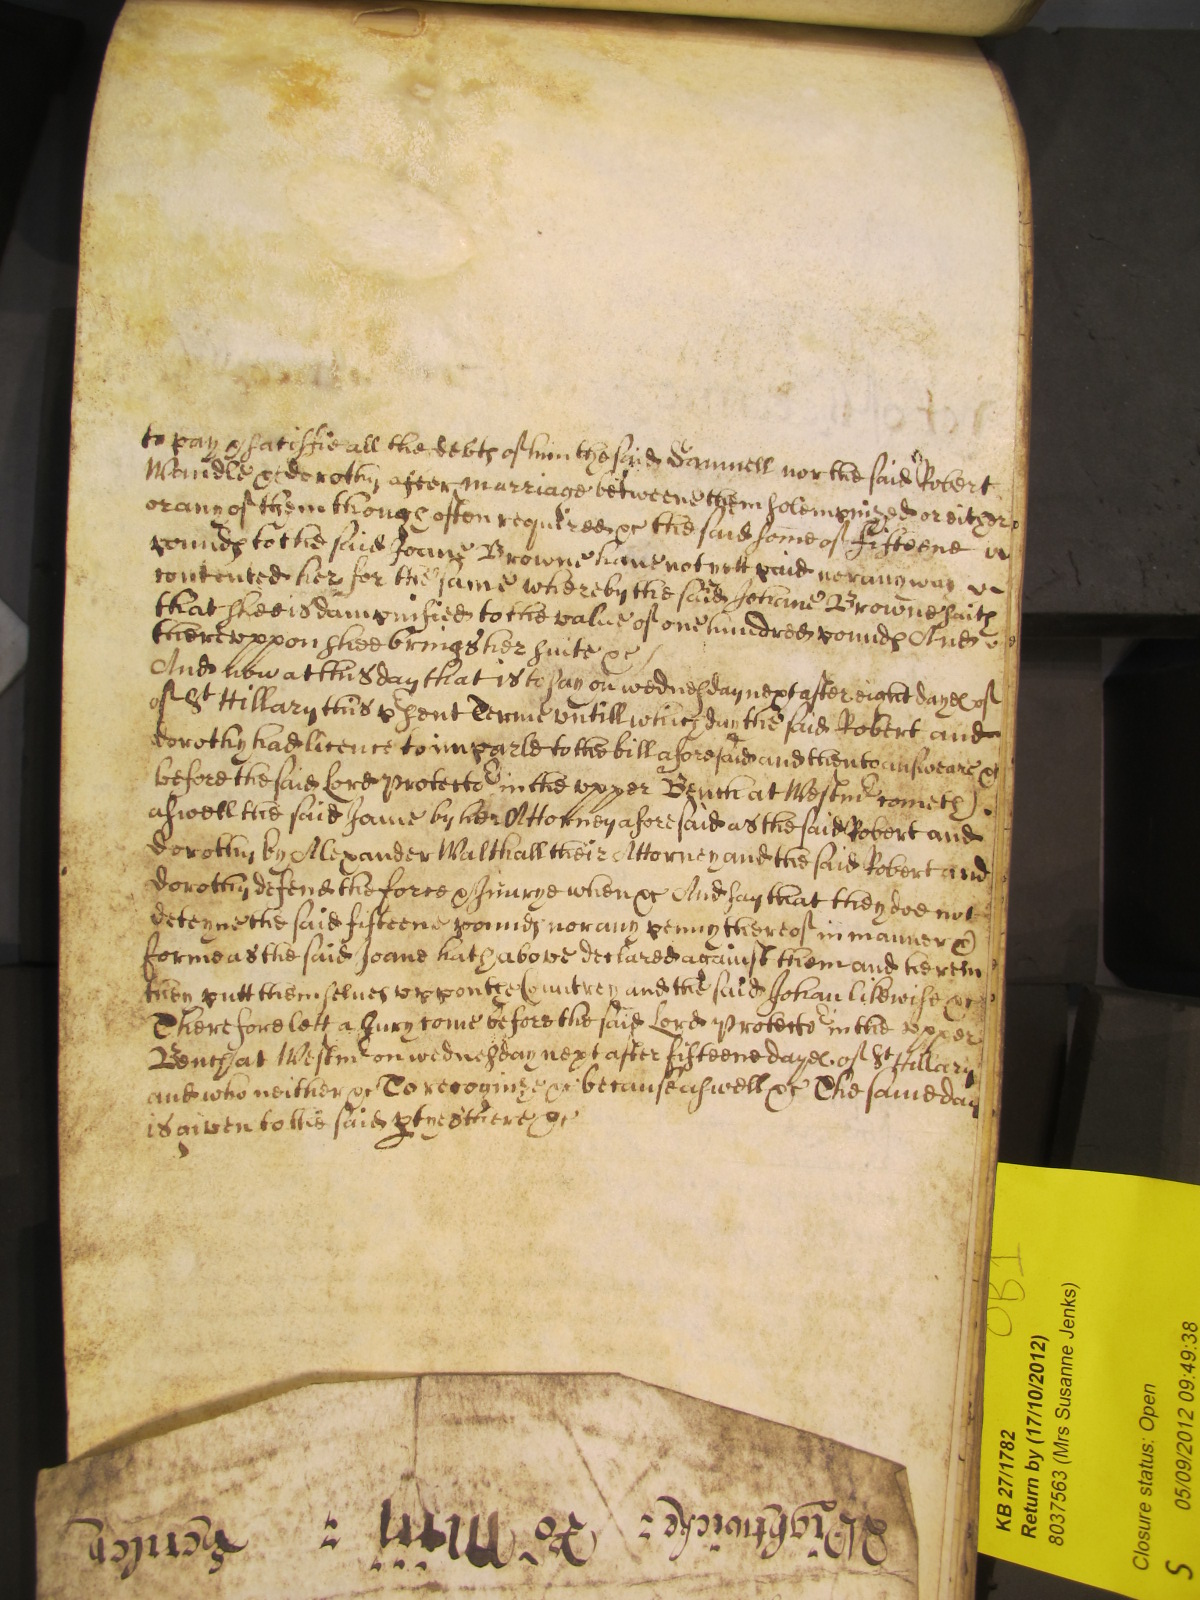 to pay & satisfie all the debts of him the said Damnell nor the said Robert
Wendle & dorothy after marriage betweene them solempnized or either
or any of them though often required &c the said some of fifteene
pounds to the said Joane Browne haue not yett paid nor any way
contented her for the same whereby the said Johane Browne saith
that shee is dampnified to the value of one hundred pounds And
thereuppon shee brings her suite &c
And now at this day that is to say on wednesday next after eight dayes of
of St Hillary this p'sent Terme untill which day the said Robert and
dorothy had licence to imparle to the bill aforesaid and then to answeare &c
before the said Lord Protector in the upper Bench at Westm' cometh
aswell the said Joane by her Attorney aforesaid as the said Robert and
Dorothy by Alexander Walthall their Attorney and the said Robert and
Dorothy defend the force & Iniurye when &c And say that they doe not
deteyne the said fifteene pounds nor any penny thereof in manner &
forme as the said Joane hath above declared against them and hereon
they putt themselues uppon the Countrey and the said Johan likewise &c
Therefore lett a Jury come before the said Lord Protector in the upper
Bench at Westm' on wednesday next after fifteene dayes of St Hillary
and who neither &c To recognize &c because aswell &c The same day
is given to the said ptyes there &c
Wightwicke: Ro: Henley
KB 27/1782
Return by (17/10/2012)
8037563 (Mrs Susanne Jenks)
Closure status: Open
05/09/2012 09:49:38
S
OB1